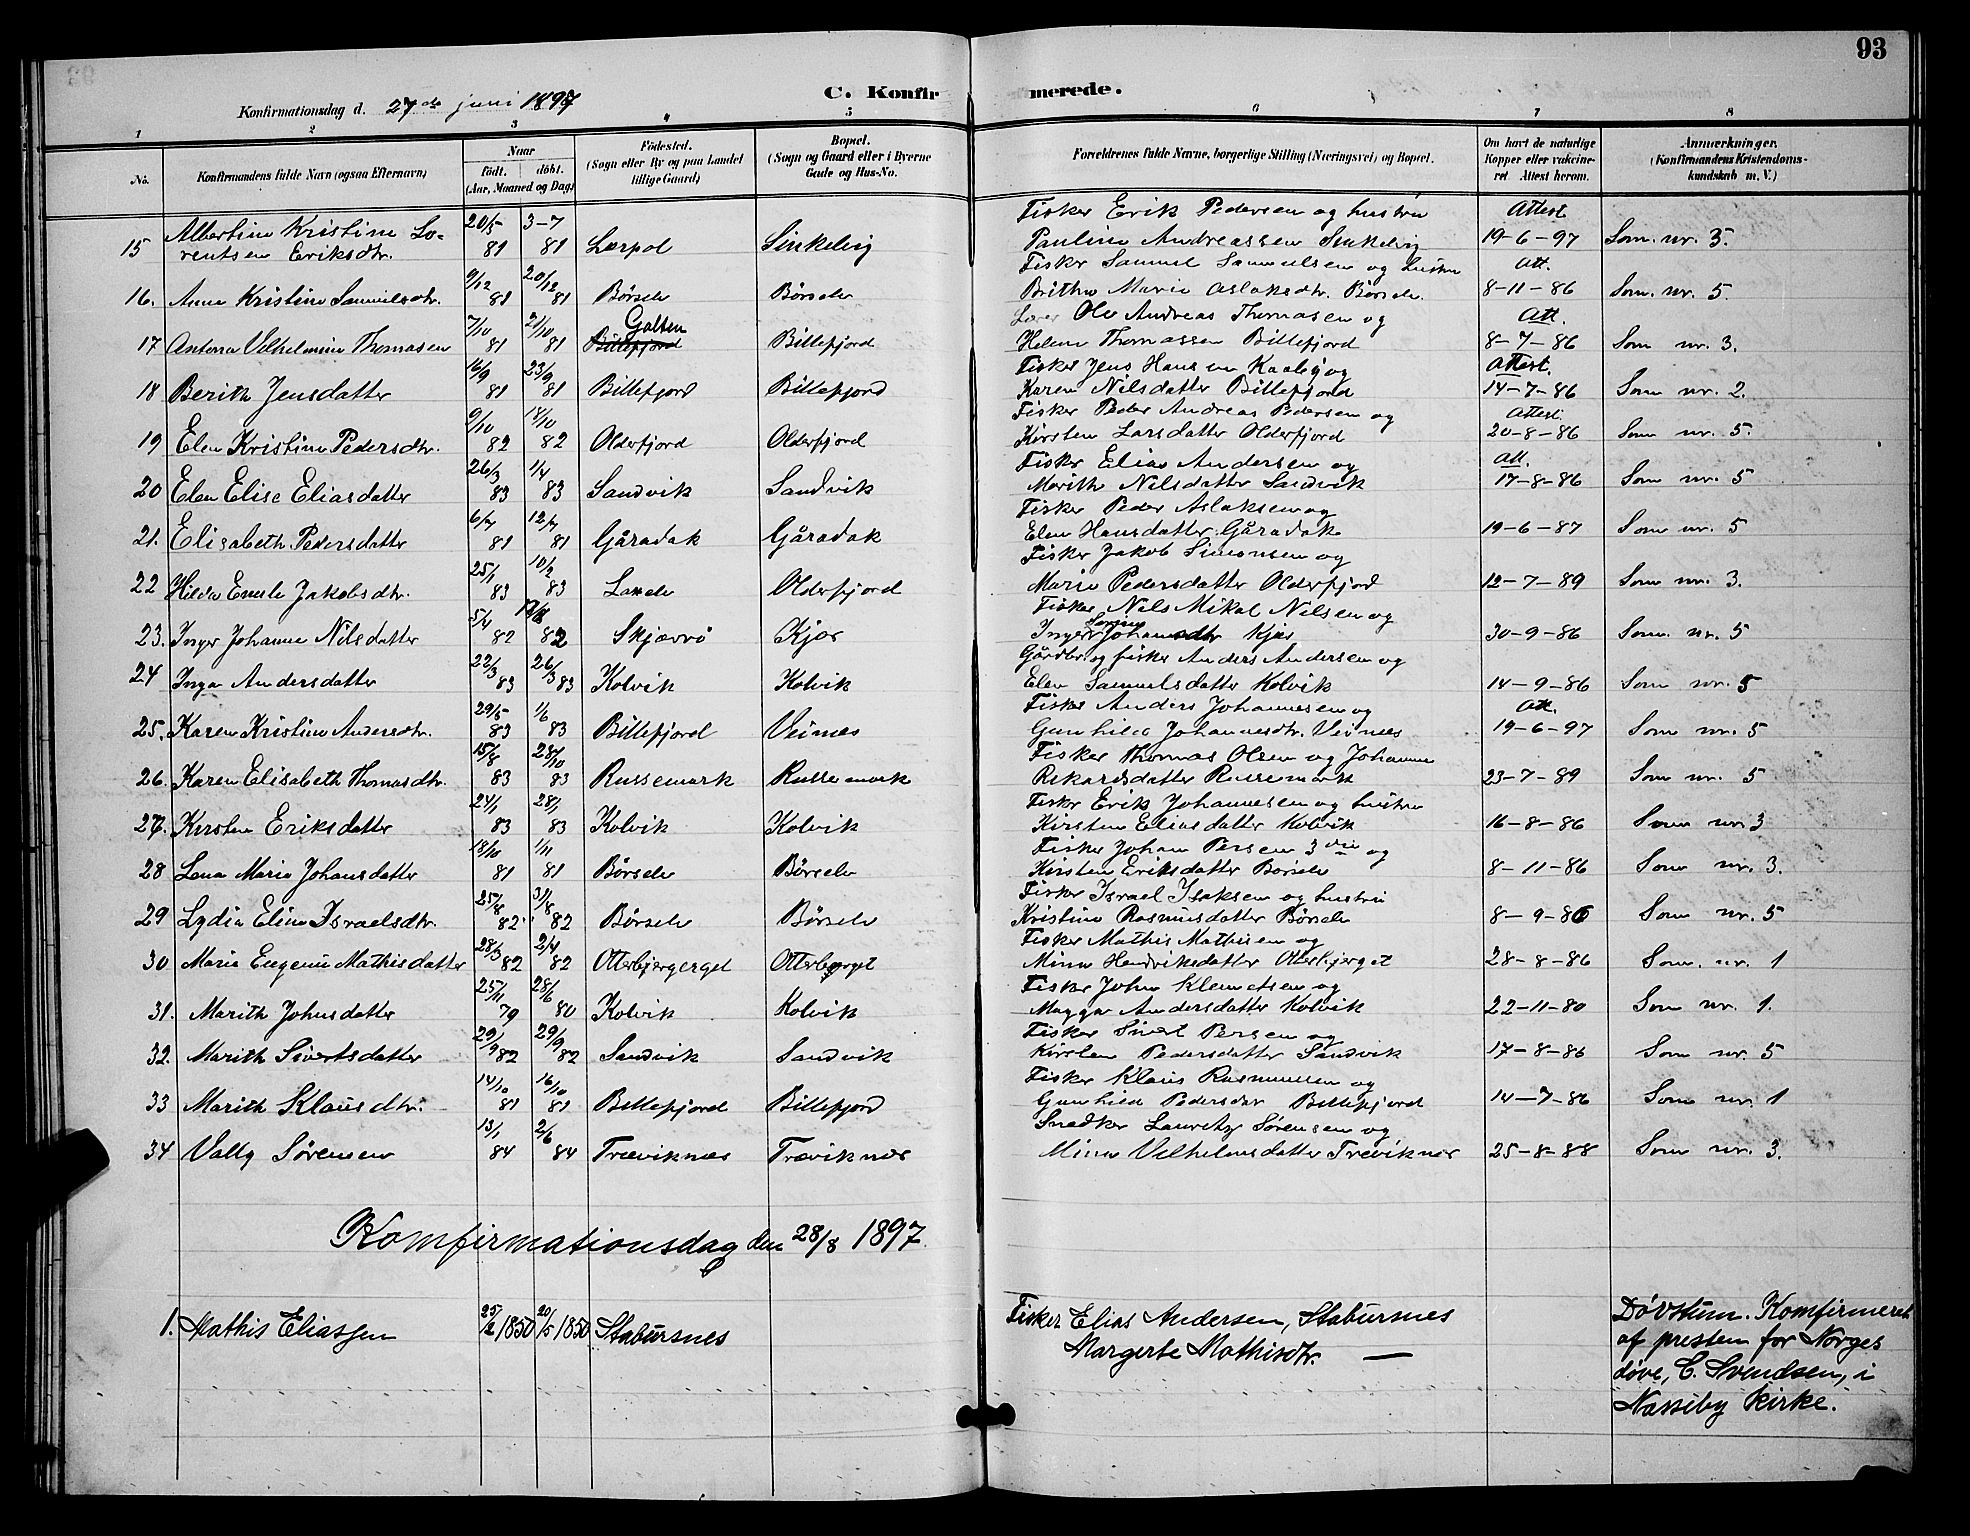 93
C. Konfirmerede.
Konfirmationsdag d. 27de juni 1897
1 2 3 4 5 6 7 8
No. Konfirmandens fulde Navn (ogsaa Efternavn) Naar födt. döbt. (Aar, Maaned og Dag) Födested. (Sogn eller By og paa Landet tillige Gaard) Bopæl. (Sogn og Gaard eller i Byerne Gade og Hus-No. Forældrenes fulde Navne, borgerlige Stilling (Næringsvei) og Bopæl. Om havt de naturlige Kopper eller vakcineret Attest herom. Anmærkninger. (Konfirmandens Kristendomskundskab m. V.)
15 Albertine Kristine Lo- 20/5 3-7 Fisker Erik Pedersen og hustru Attest
rentsen Eriksdtr. 81 81 Lerpol Sinkelvig Pauline Andreassen Sinkelvig 19-6-97 Som nr. 5.
16. Anne Kristine Samuelsdtr. 9/12 81 20/12 81 Börselv Börselv Fisker Samuel Samuelsen og hustru Att.
Brithe Marie Aslaksdtr. Börselv. 8-11-86 Som nr. 5.
17 Antona Vilhelmine Thomasen 7/10 81 21/10 81 Billefjord Galten Billefjord Lærer Ole Andreas Thomasen og Att.
Helene Thomassen Billefjord 8-7-86 Som nr. 3.
18 Berith Jensdatter 16/9 81 23/9 81 Billefjord Billefjord Fisker Jens Hansen Kaaby og Attest.
Karen Nilsdatter Billefjord 14-7-86 Som nr. 2.
19 Elen Kristine Pedersdtr. 9/10 82 14/10 82 Olderfjord Olderfjord Fisker Peder Andreas Pedersen og Attest.
Kirsten Larsdatter Olderfjord 20-8-86 Som nr. 5.
20 Elen Elise Eliasdatter 26/3 83 1/4 83 Sandvik Sandvik Fisker Elias Andersen og Att.
Marith Nilsdatter Sandvik 17-8-86 Som nr. 5
21. Elisabeth Pedersdatter 6/7 81 12/7 81 Gåradak Gåradak Fisker Peder Aslaksen og
Elen Hansdatter Gåradak 19-6-87 Som nr. 5
22 Hilda Emile Jakobsdtr. 25/1 83 10/2 83 Olderfjord Fisker Jakob Simonsen og
Marie Pedersdatter Olderfjord 12-7-89 Som nr. 3.
23. Inger Johanne Nilsdatter 5/4 82 82 Skjærvö Kjæs Fisker Nils Mikal Nilsen og
Inger Johansdtr Kjæs 30-9-86 Som nr. 5
24 Inga Andersdatter 22/3 83 26/3 83 Kolvik Kolvik Gårdbr. og fisker Anders Andersen og
Elen Samuelsdatter Kolvik 14-9-86 Som nr. 5
25. Karen Kristine Andersdtr. 29/5 83 1/6 83 Billefjord Veines Fisker Anders Johannesen og Att.
Gunhild Johannesdtr. Veines 19-6-97 Som nr. 5
26. Karen Elisabeth Thomasdtr. 15/8 83 28/10 83 Russemark Russemark Fisker Thomas Olsen og Johanne
Rikardsdatter Russemark 23-7-89 Som nr. 5
27. Kirsten Eriksdatter 24/1 83 28/1 83 Kolvik Kolvik Fisker Erik Johannesen og hustru
Kirsten Eliasdatter Kolvik 16-8-86 Som nr. 3
28 Lena Maria Johansdatter 18/10 81 1/11 81 Börselv Börselv Fisker Johan Persen 3die og
Kirsten Eriksdatter Börselv 8-11-86 Som nr. 3.
29 Lydia Eline Israelsdtr. 25/8 82 31/8 82 Börselv Börselv Fisker Israel Isaksen og hustru
Kristine Rasmusdatter Börselv 8-9-86 Som nr. 5
30 Marie Eugenie Mathisdatter 28/3 82 2/4 82 Otterbjergerget Otterbjerget Fisker Mathis Mathisen og
Mine Hendriksdatter Otterbjerget 28-8-86 Som nr. 1
31. Marith Johnsdatter 25/11 79 28/6 80 Kolvik Kolvik Fisker John Klemetsen og
Magga Andersdatter Kolvik 22-11-80 Som nr. 1.
32. Marith Sivertsdatter 29/9 82 29/9 82 Sandvik Sandvik Fisker Sivert Persen og
Kirsten Pedersdatter Sandvik 17-8-86 Som nr. 5
33 Marith Klausdtr. 14/10 81 16/10 81 Billefjord Billefjord Fisker Klaus Rasmussen og
Gunhild Pedersdtr Billefjord 14-7-86 Som nr. 1
34 Vally Sörensen 13/1 84 2/6 84 Træviknæs Træviknæs Snedker Lauritz Sørensen og
Mine Vilhelmsdatter Træviknæs 25-8-88 Som nr. 3.
Komfirmationsdag den 28/8 1897.
1. Mathis Eliassen 1850 20/5 1850 Stabursnes Fisker Elias Andersen, Stabursnes Døvstum. Komfirmeret
Margerte Mathisdtr. — af presten for Norges
døve, C. Svendsen, i
Nasseby kirke.